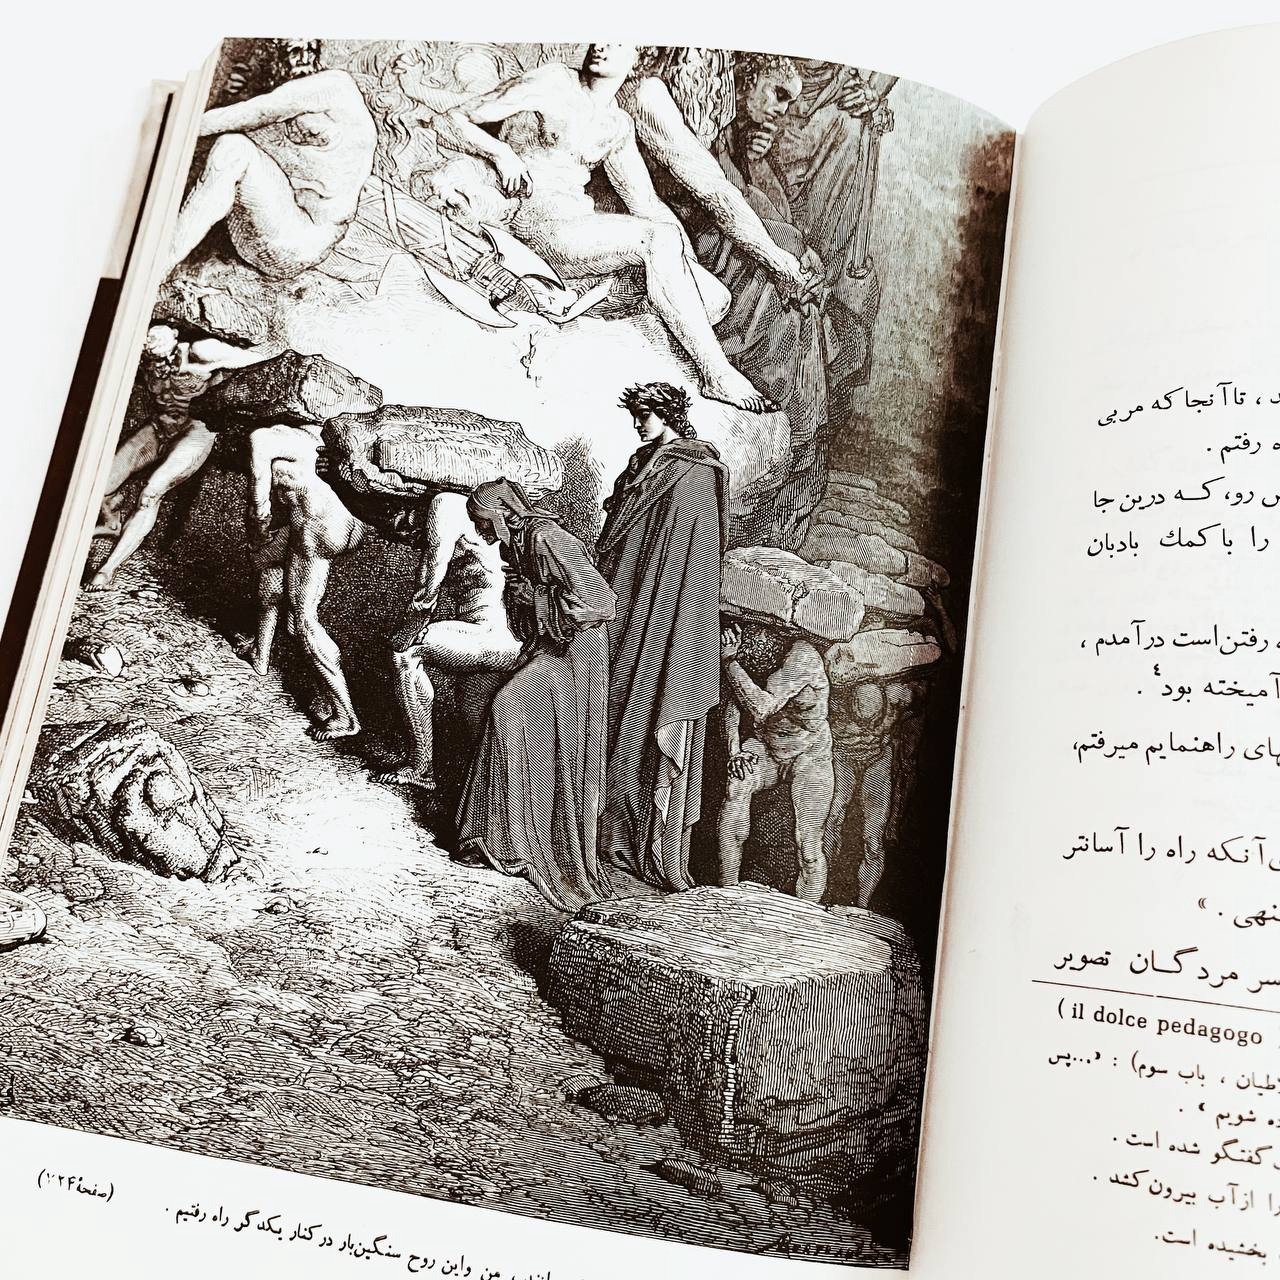 ، تا آنجا که مربی
رفتم .
رو، که درین جا
را با کمك بادبان
رفتن‌است درآمدم ،
آمیخته بود۴ .
راهنمایم میرفتم،
آنکه راه را آسانتر
نهی . »
مردگان تصویر
( il dolce pedagogo
، باب سوم) : «...پس
شویم » .
گفتگو شده است .
را از آب بیرون کشد .
بخشیده است.
، من و این روح سنگین‌بار در کنار یکدگر راه رفتیم .
(صفحهٔ ۷۲۴)